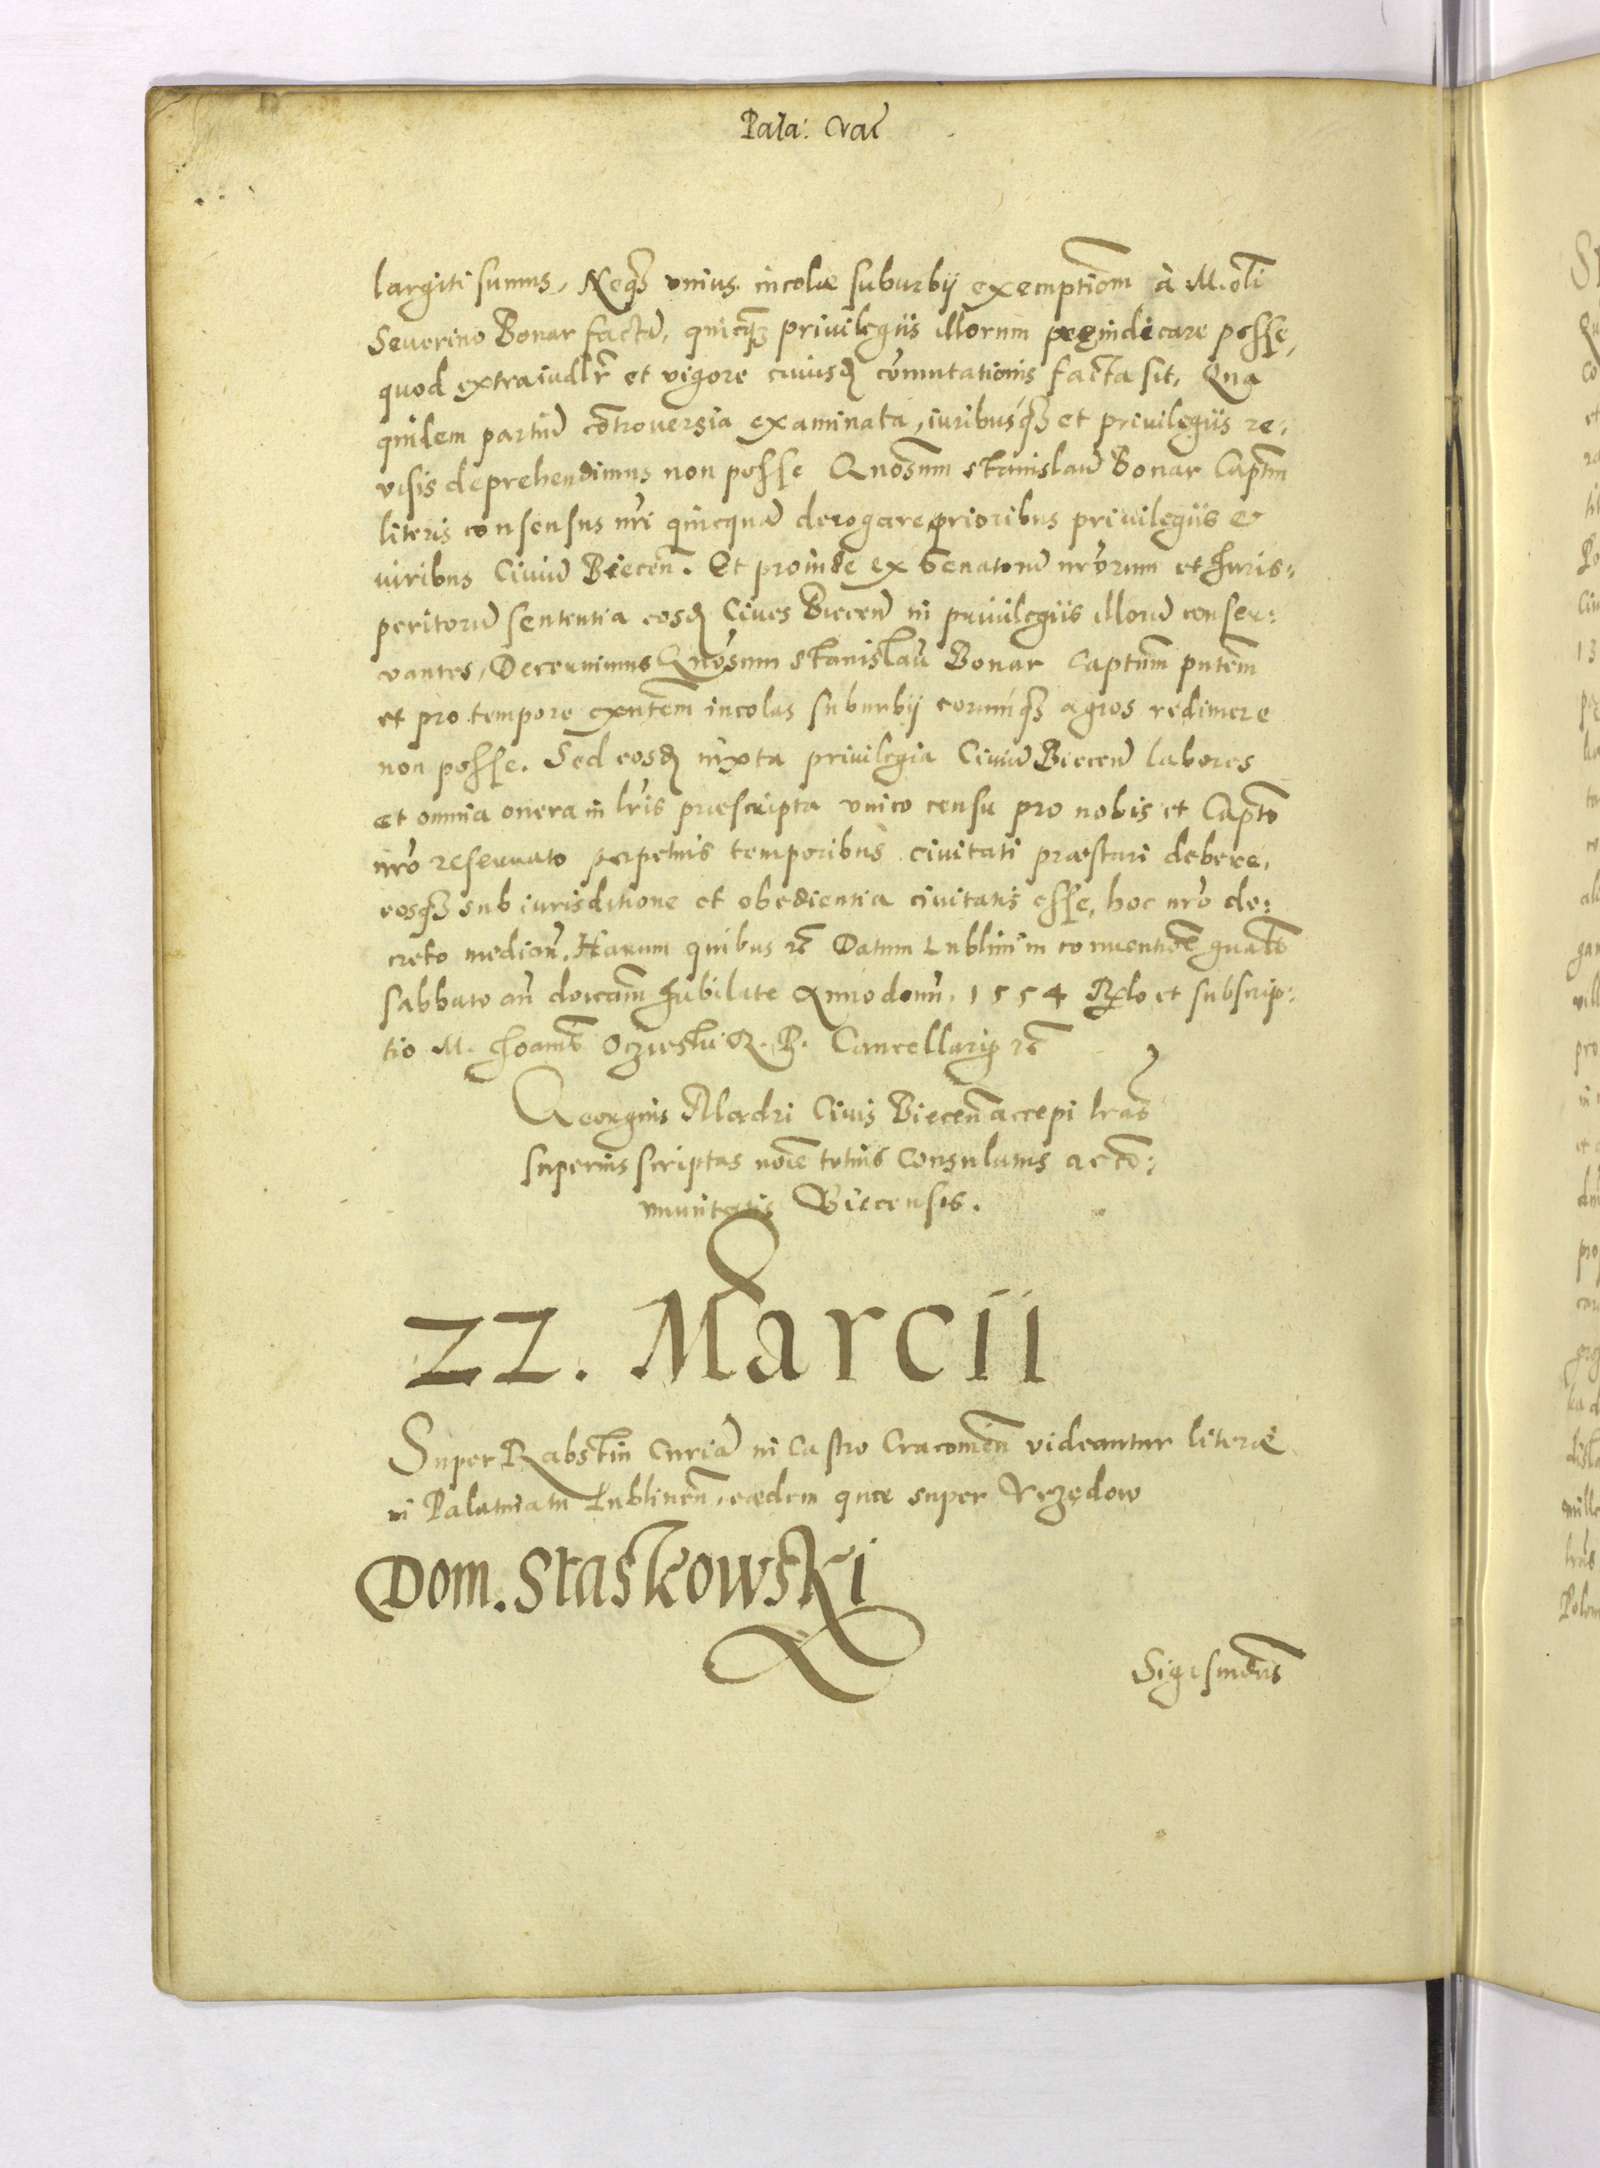 Pala: Crac̃
largiti sumus, Neqʒ vnius incolæ suburbij exemptiom̃ à M. olĩ
Seuerino Bonar factã, quicqʒ priuilegiis illorum preiudicare posse,
quod extraiudlr̃ et vigore cuiusd̃ cõmutationis facta sit, Qua
quidem partiũ cõtrouersia examinata, iuribusqʒ et priuilegiis re:
visis deprehendimus non posse Gnosum Stanislaũ Bonar Captm̃
literis consensus nr̃i quicquã derogare prioribus priuilegiis et
iuribus Ciuiũ Biecen̄. Et proinde ex Senatorũ nr̃orum et Juris:
peritorũ sententia eosd̃ Ciues Biecen̄ in priuilegiis illorũ conser:
vantes, Decernimus Gnosum Stanislaũ Bonar Captum̃ pntem̃
et pro tempore exntem̃ incolas suburbij eorumqʒ agros redimere
non posse. Sed eosd̃ iuxta priuilegia Ciuiũ Biecen̄ labores
et omnia onera in lr̃is præscripta vnico censu pro nobis et Capto
nr̃o reseruato perpetuis temporibus ciuitati præstari debere,
eosqʒ sub iurisditione et obedientia ciuitatis esse, hoc nr̃o de:
creto median̄. Harum quibus rc̃ Datum Lublini in conuentioe gnali
sabbato an̄ dnicam̃ Jubilate Anno domĩ. 1554 Rlo et subscrip:
tio M. Joannis Oczieski R. P. Cancellarij rc̃
Georgius Alexdri Ciuis Biecen̄ accepi lr̃as
superius scriptas noĩe totius Consulatus ac cõ:
munitatis Biecensis.
22. Marcii
Super Rabstin Curiã in Castro Cracouien̄ videantur literæ
in Palatinatu Lublinen̄, eædem quæ super Vrzędow
Dom. Staskowski
Sigismũdus